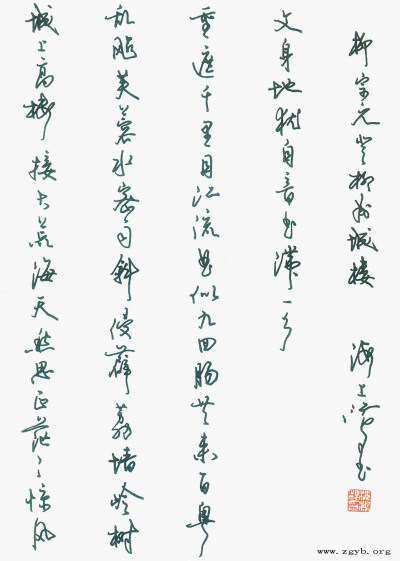 城上高楼接大荒海天愁思正茫々惊风
乱飐芙蓉水密雨斜侵薜荔墙岭树
重遮千里目江流曲似九回肠共来百粤
文身地犹自音书滞一乡
柳宗元登柳州城楼 海上
www.zgyb.org